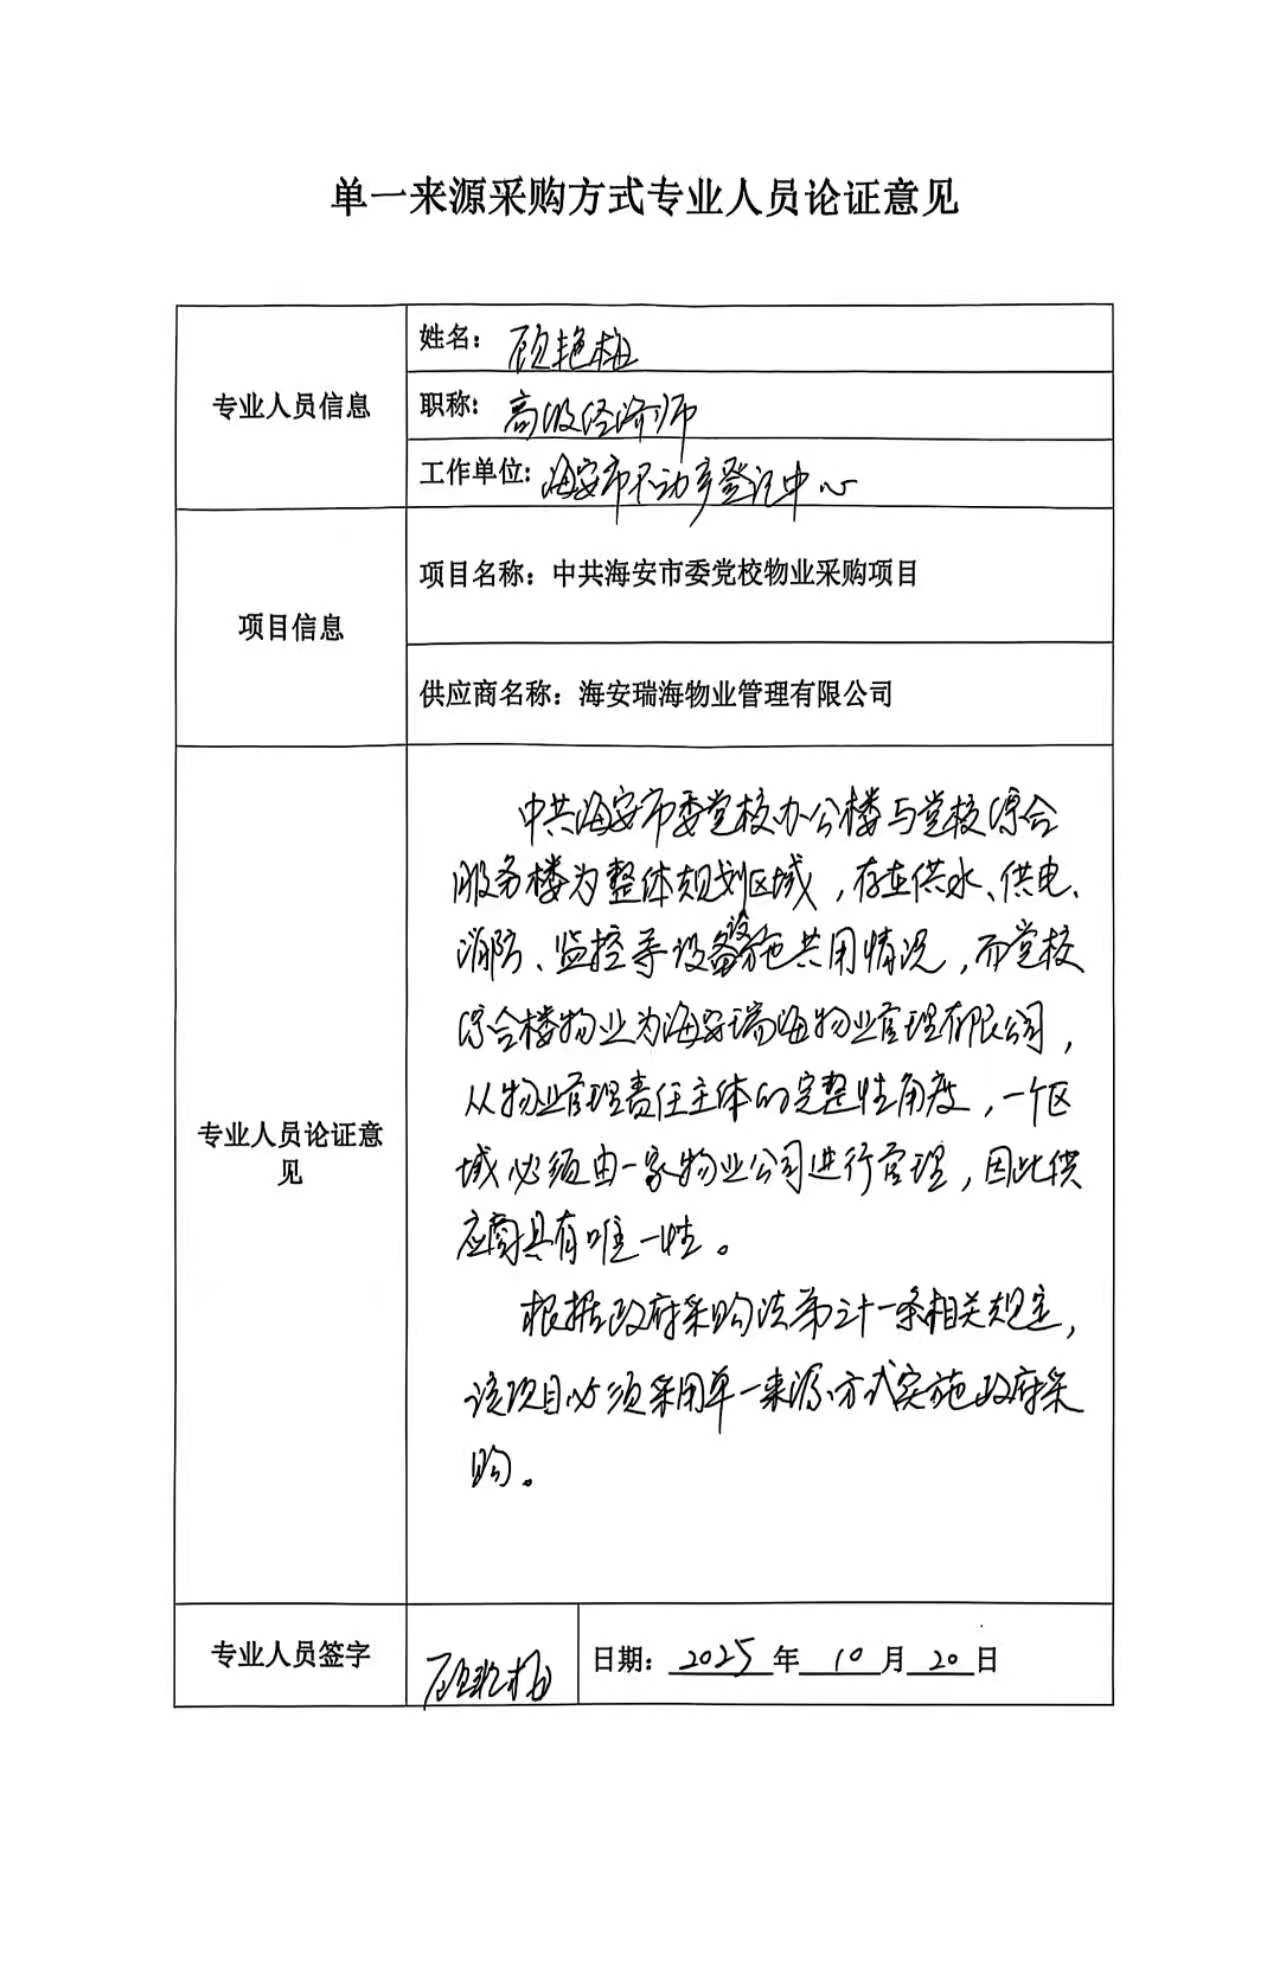 单一来源采购方式专业人员论证意见
专业人员信息
姓名：顾艳梅
职称：高级经济师
工作单位：海安市不动产登记中心
项目信息
项目名称：中共海安市委党校物业采购项目
供应商名称：海安瑞海物业管理有限公司
专业人员论证意
见
中共海安市委党校办公楼与党校综合
服务楼为整体规划区域，存在供水、供电、
消防、监控等设备设施共用情况，而党校
综合楼物业为海安瑞海物业管理有限公司，
从物业管理责任主体的完整性角度，一个区
域必须由一家物业公司进行管理，因此供
应商具有唯一性。
根据政府采购法第三十一条相关规定，
该项目必须采用单一来源方式实施政府采
购。
专业人员签字
顾艳梅
日期：2025年10月20日